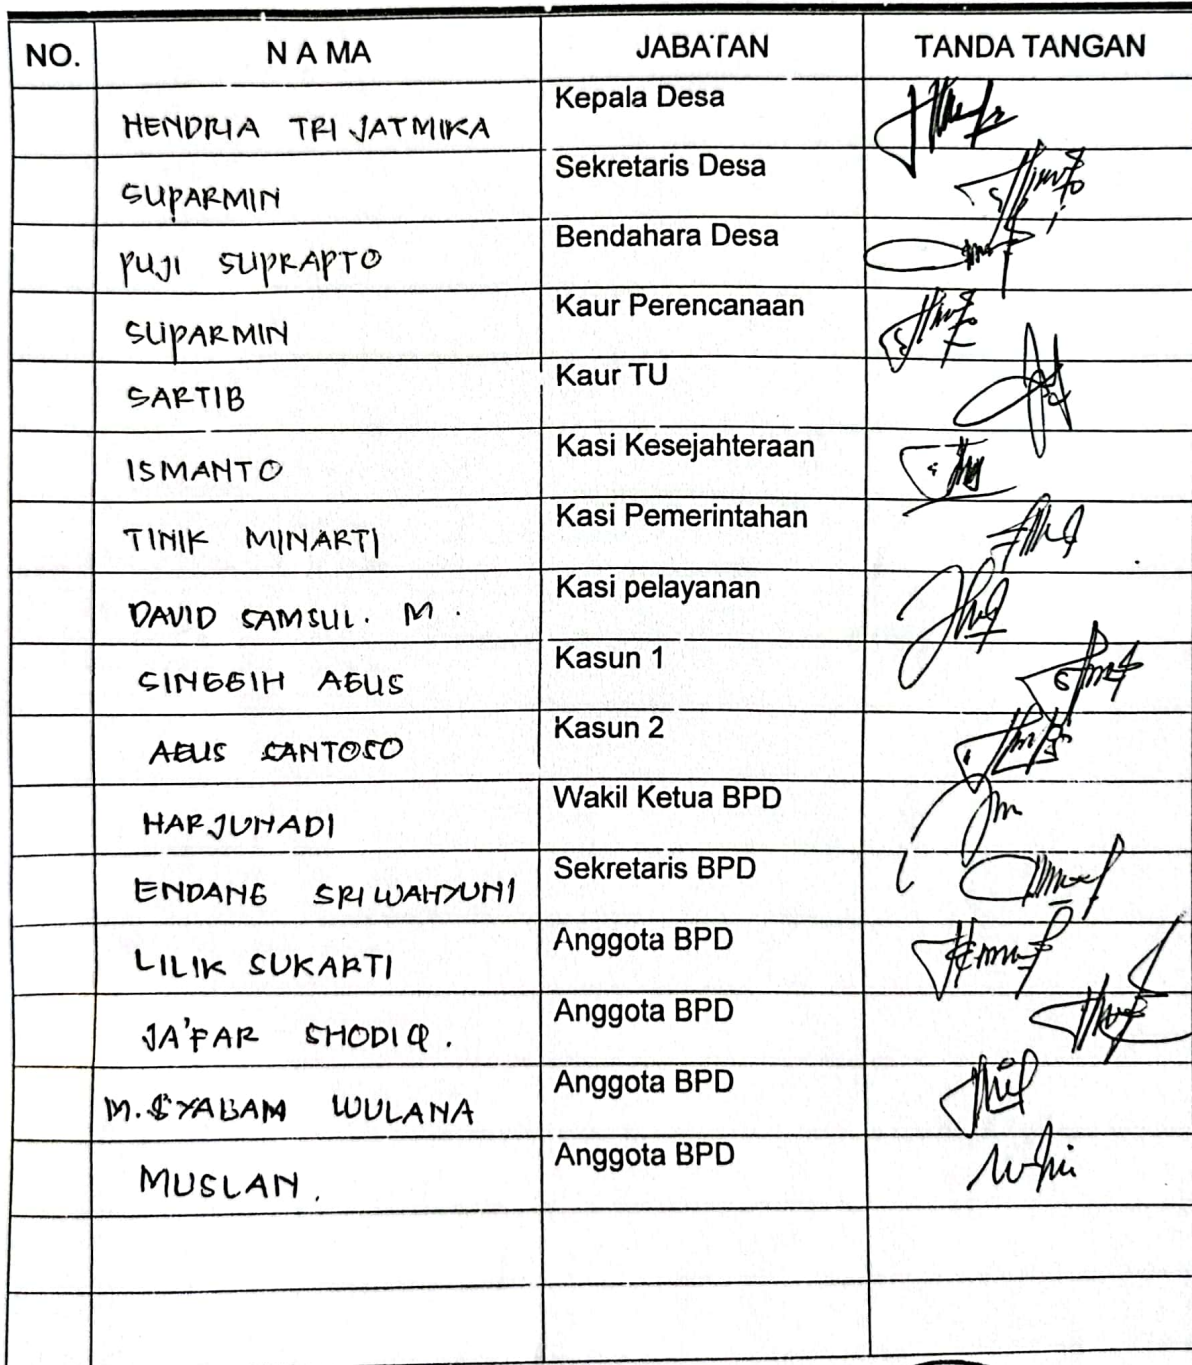 NO. N A MA JABATAN TANDA TANGAN
HENDRIA TRI JATMIKA Kepala Desa
SUPARMIN Sekretaris Desa
PUJI SUPRAPTO Bendahara Desa
SUPARMIN Kaur Perencanaan
SARTIB Kaur TU
ISMANTO Kasi Kesejahteraan
TINIK MINARTI Kasi Pemerintahan
DAVID SAMSUL. M. Kasi pelayanan
SINGGIH AGUS Kasun 1
AGUS SANTOSO Kasun 2
HARJUNADI Wakil Ketua BPD
ENDANG SRI WAHYUNI Sekretaris BPD
LILIK SUKARTI Anggota BPD
JA'FAR SHODIQ. Anggota BPD
M. SYABAM WULANA Anggota BPD
MUSLAN. Anggota BPD